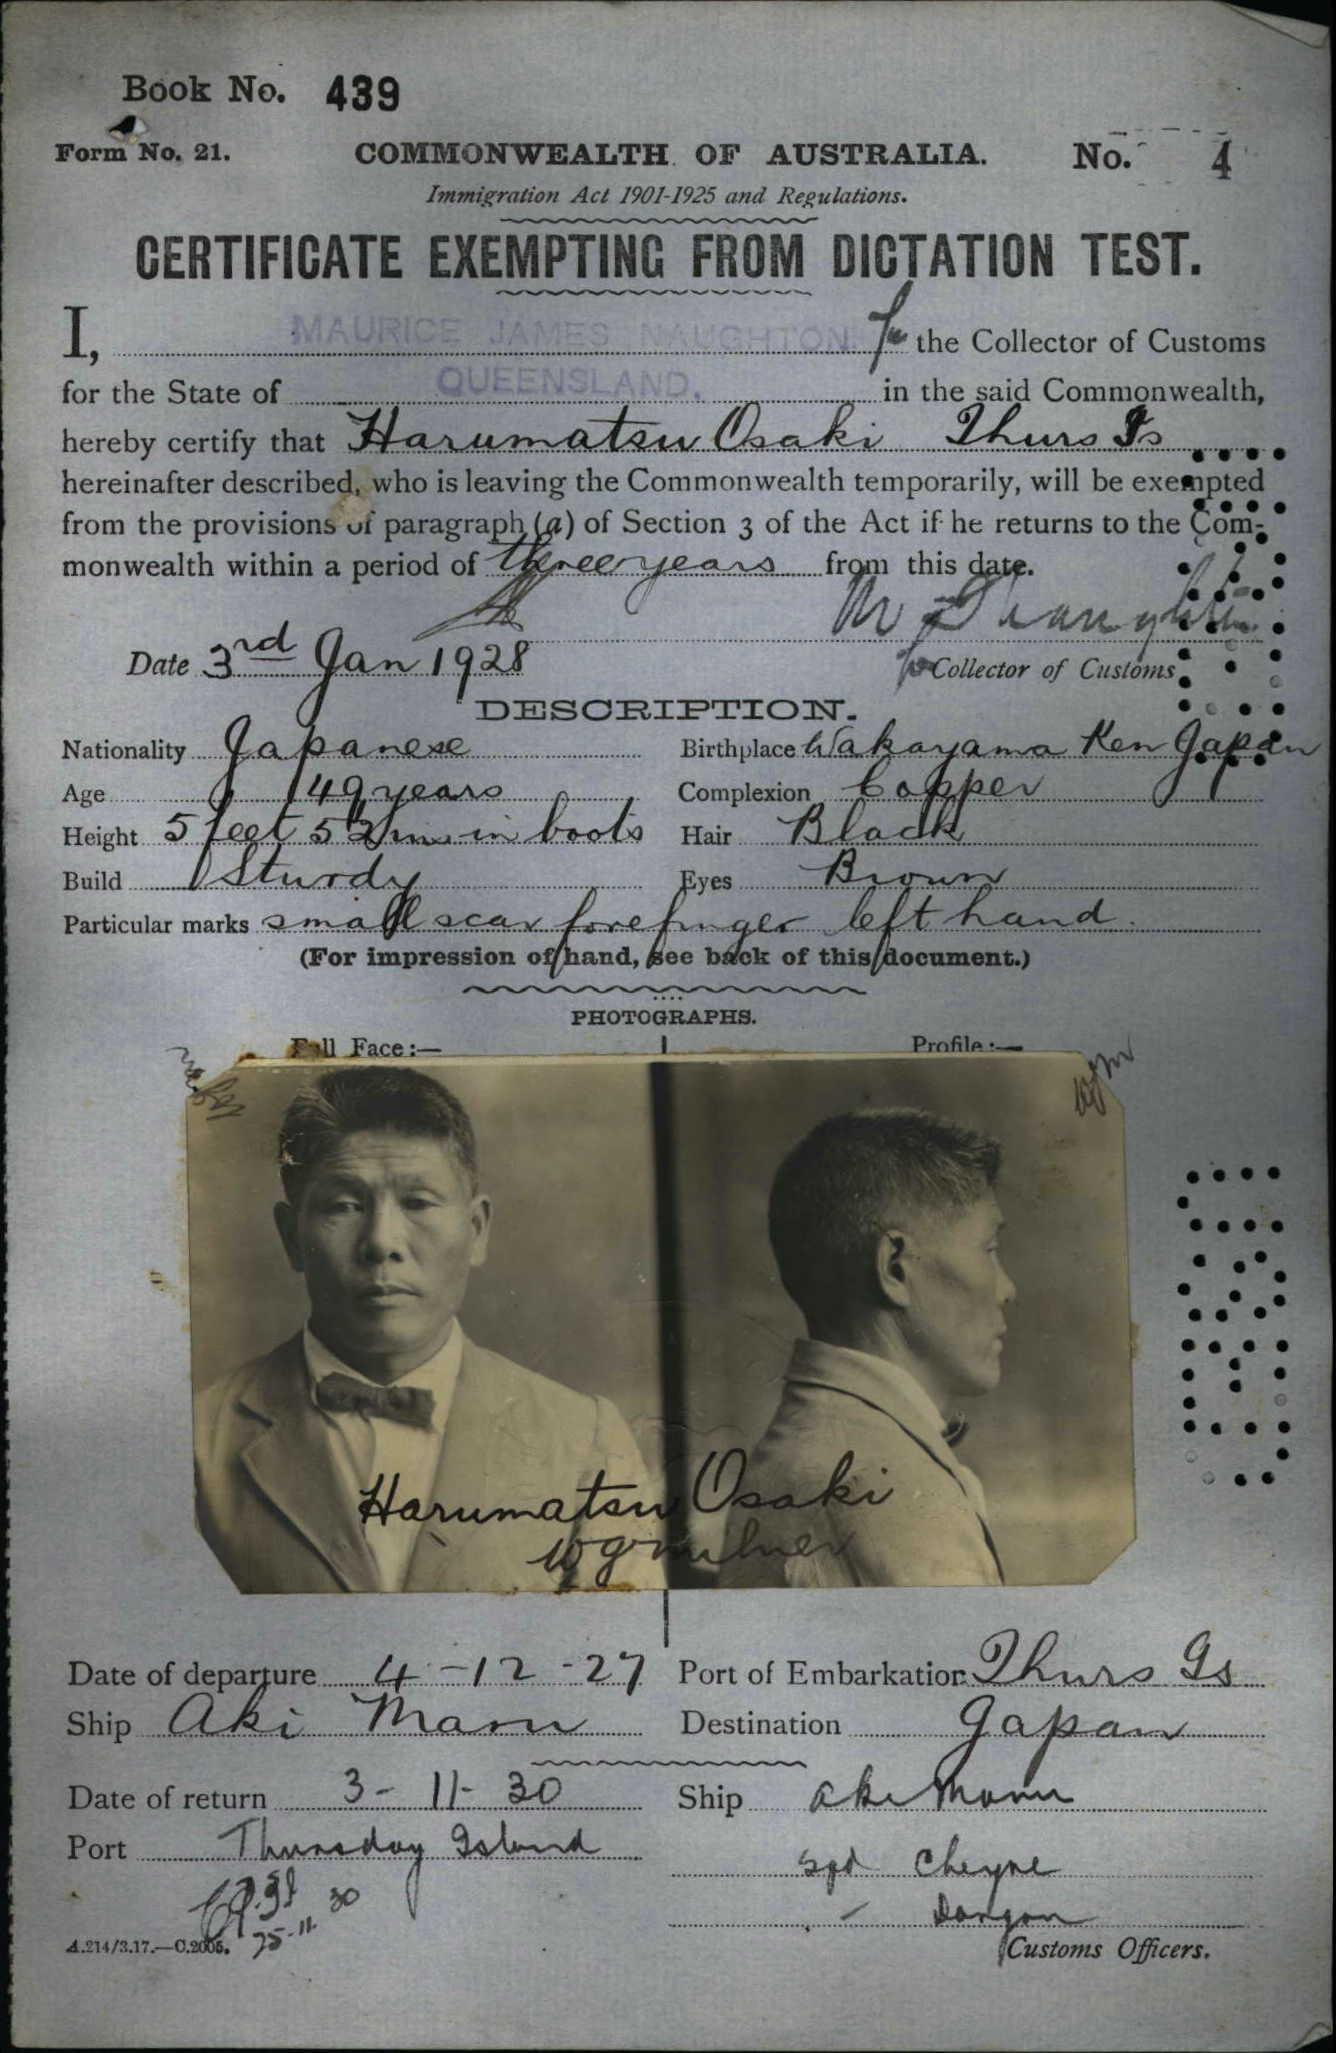 Book No. 439
Form No. 21. COMMONWEALTH OF AUSTRALIA. No. 4
Immigration Act 1901-1925 and Regulations.
CERTIFICATE EXEMPTING FROM DICTATION TEST.
I, MAURICE JAMES NAUGHTON for the Collector of Customs
for the State of QUEENSLAND. in the said Commonwealth,
hereby certify that Harumatsu Osaki Thurs Is
hereinafter described, who is leaving the Commonwealth temporarily, will be exempted
from the provisions of paragraph (a) of Section 3 of the Act if he returns to the Com-
monwealth within a period of three years from this date.
M J Naughton
Date 3rd Jan 1928 for Collector of Customs
DESCRIPTION.
Nationality Japanese Birthplace Wakayama Ken Japan
Age 49 years Complexion Copper
Height 5 feet 5½ ins in boots Hair Black
Build Sturdy Eyes Brown
Particular marks small scar forefinger left hand.
(For impression of hand, see back of this document.)
PHOTOGRAPHS.
Full Face:— Profile:—
Harumatsu Osaki
W G Milner
Date of departure 4-12-27 Port of Embarkation Thurs Is
Ship Aki Maru Destination Japan
Date of return 3-11-30 Ship Aki Maru
Port Thursday Island
sgd Cheyne
25-11-30
A.214/3.17.—C.2005. Customs Officers.